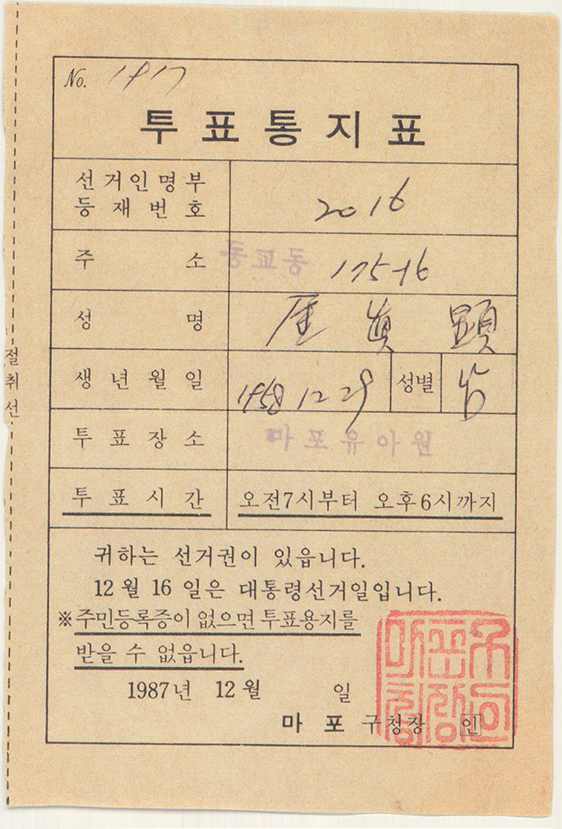 No.
투표통지표
선거인명부
등재번호
2016
주 소
동교동 175-16
성 명
眞
생년월일
1958 12 29
성별
남
투표장소
마포유아원
투표시간
오전7시부터 오후6시까지
귀하는 선거권이 있읍니다.
12월 16일은 대통령선거일입니다.
※주민등록증이 없으면 투표용지를
받을 수 없읍니다.
1987년 12월 일
마포구청장 인
절취선